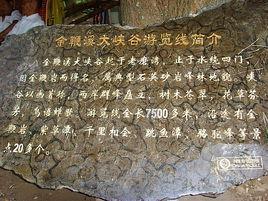 金鞭溪大峡谷游览线简介
金鞭溪大峡谷起于老磨湾,止于水绕四门,
因金鞭岩而得名,属典型石英砂岩峰林地貌,溪
谷以幽著称,两岸群峰屹立,树木苍翠,花草芬
芳,鸟语蝉鸣,游览线全长7500多米,沿线有金
鞭岩、紫草潭、千里相会、跳鱼潭、骆驼峰等景
点20多个。